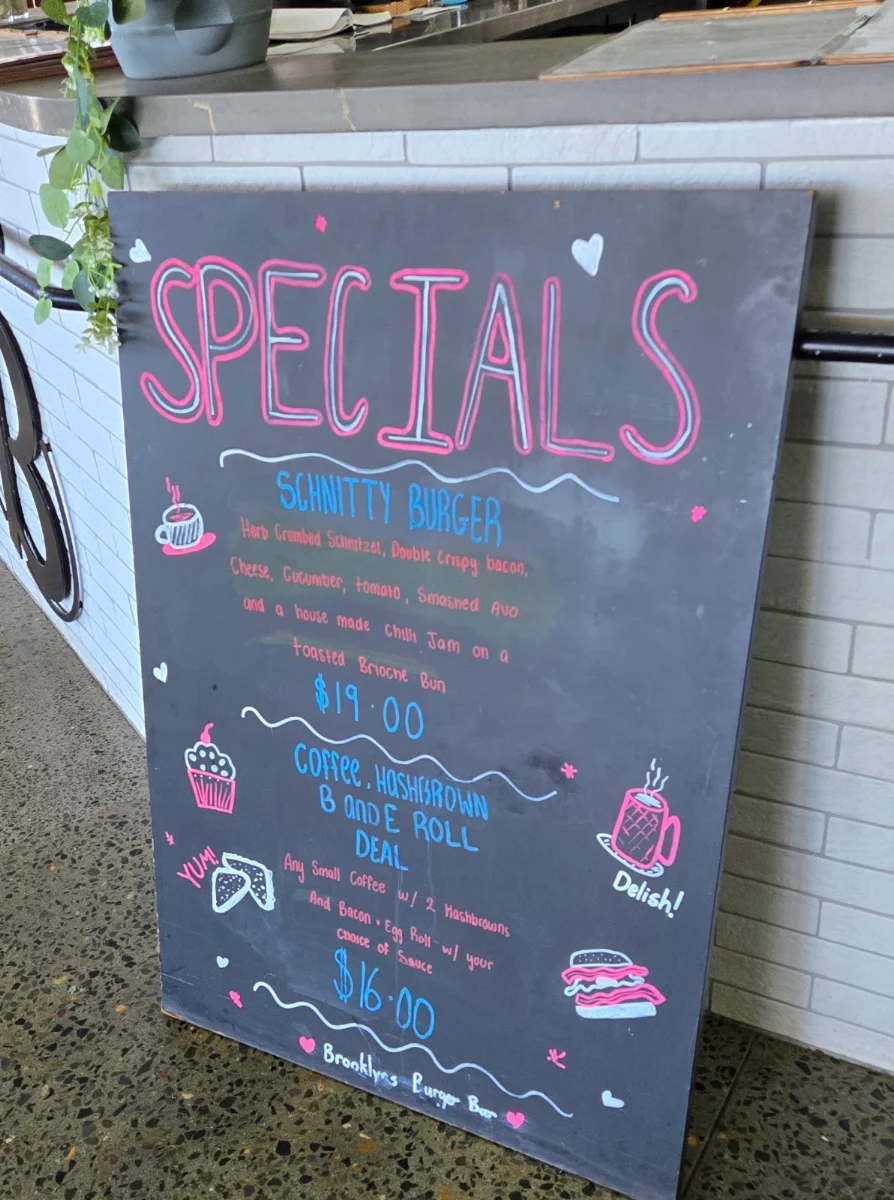 SPECIALS
SCHNITTY BURGER
Herb Crumbed Schnitzel, Double Crispy bacon,
Cheese, Cucumber, tomato, Smashed Avo
and a house made chilli Jam on a
toasted Brioche Bun
$19.00
Coffee, HASHBROWN
B and E ROLL
DEAL
Any Small Coffee w/ 2 Hashbrowns
And Bacon + Egg Roll w/ your
choice of Sauce
$16.00
YUM!
Delish!
Brooklyns Burger Bar
B